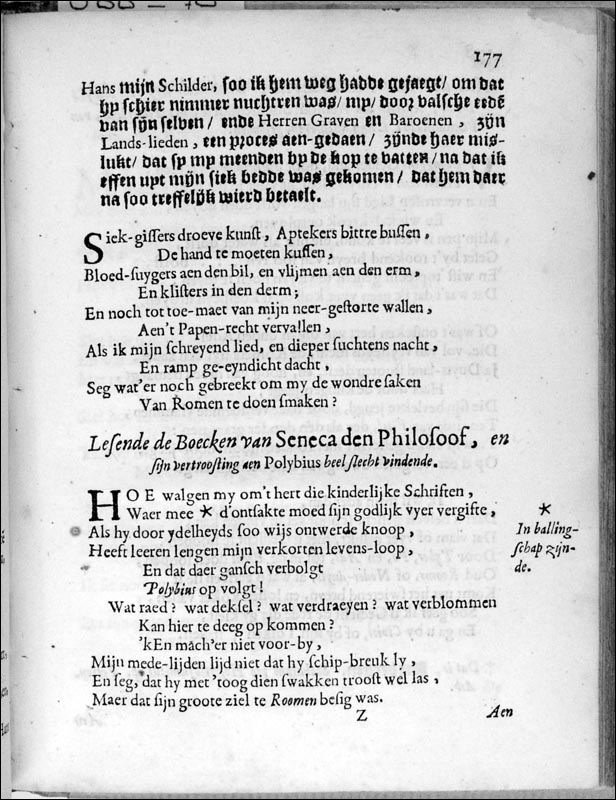 177
Hans mijn Schilder, soo ik hem weg hadde gejaegt/ om dat
hy schier nimmer nuchtren was/ my/ door valsche eedē
van sijn selven/ ende Herren Graven en Baroenen, zijn
Lands-lieden, een proces aen-gedaen/ zijnde haer mis-
lukt/ dat sy my meenden by de kop te vatten/ na dat ik
effen uyt mijn siek bedde was gekomen/ dat hem daer
na soo treffelijk wierd betaelt.
Siek-gissers droeve kunst, Aptekers bittre bussen,
De hand te moeten kussen,
Bloed-suygers aen den bil, en vlijmen aen den erm,
En klisters in den derm;
En noch tot toe-maet van mijn neer-gestorte wallen,
Aen't Papen-recht vervallen,
Als ik mijn schreyend lied, en dieper suchtens nacht,
En ramp ge-eyndicht dacht,
Seg wat'er noch gebreekt om my de wondre saken
Van Romen te doen smaken?
Lesende de Boecken van Seneca den Philosoof, en
sijn vertroosting aen Polybius heel slecht vindende.
HOE walgen my om't hert die kinderlijke Schriften,
Waer mee * d'ontsakte moed sijn godlijk vyer vergifte,
Als hy door ydelheyds soo wijs ontwerde knoop,
Heeft leeren lengen mijn verkorten levens-loop,
En dat daer gansch verbolgt
Polybius op volgt!
Wat raed? wat deksel? wat verdraeyen? wat verblommen
Kan hier te deeg op kommen?
'kEn mach'er niet voor-by,
Mijn mede-lijden lijd niet dat hy schip-breuk ly,
En seg, dat hy met 'toog dien swakken troost wel las,
Maer dat sijn groote ziel te Roomen besig was.
*
In balling-
schap zijn-
de.
Z
Aen